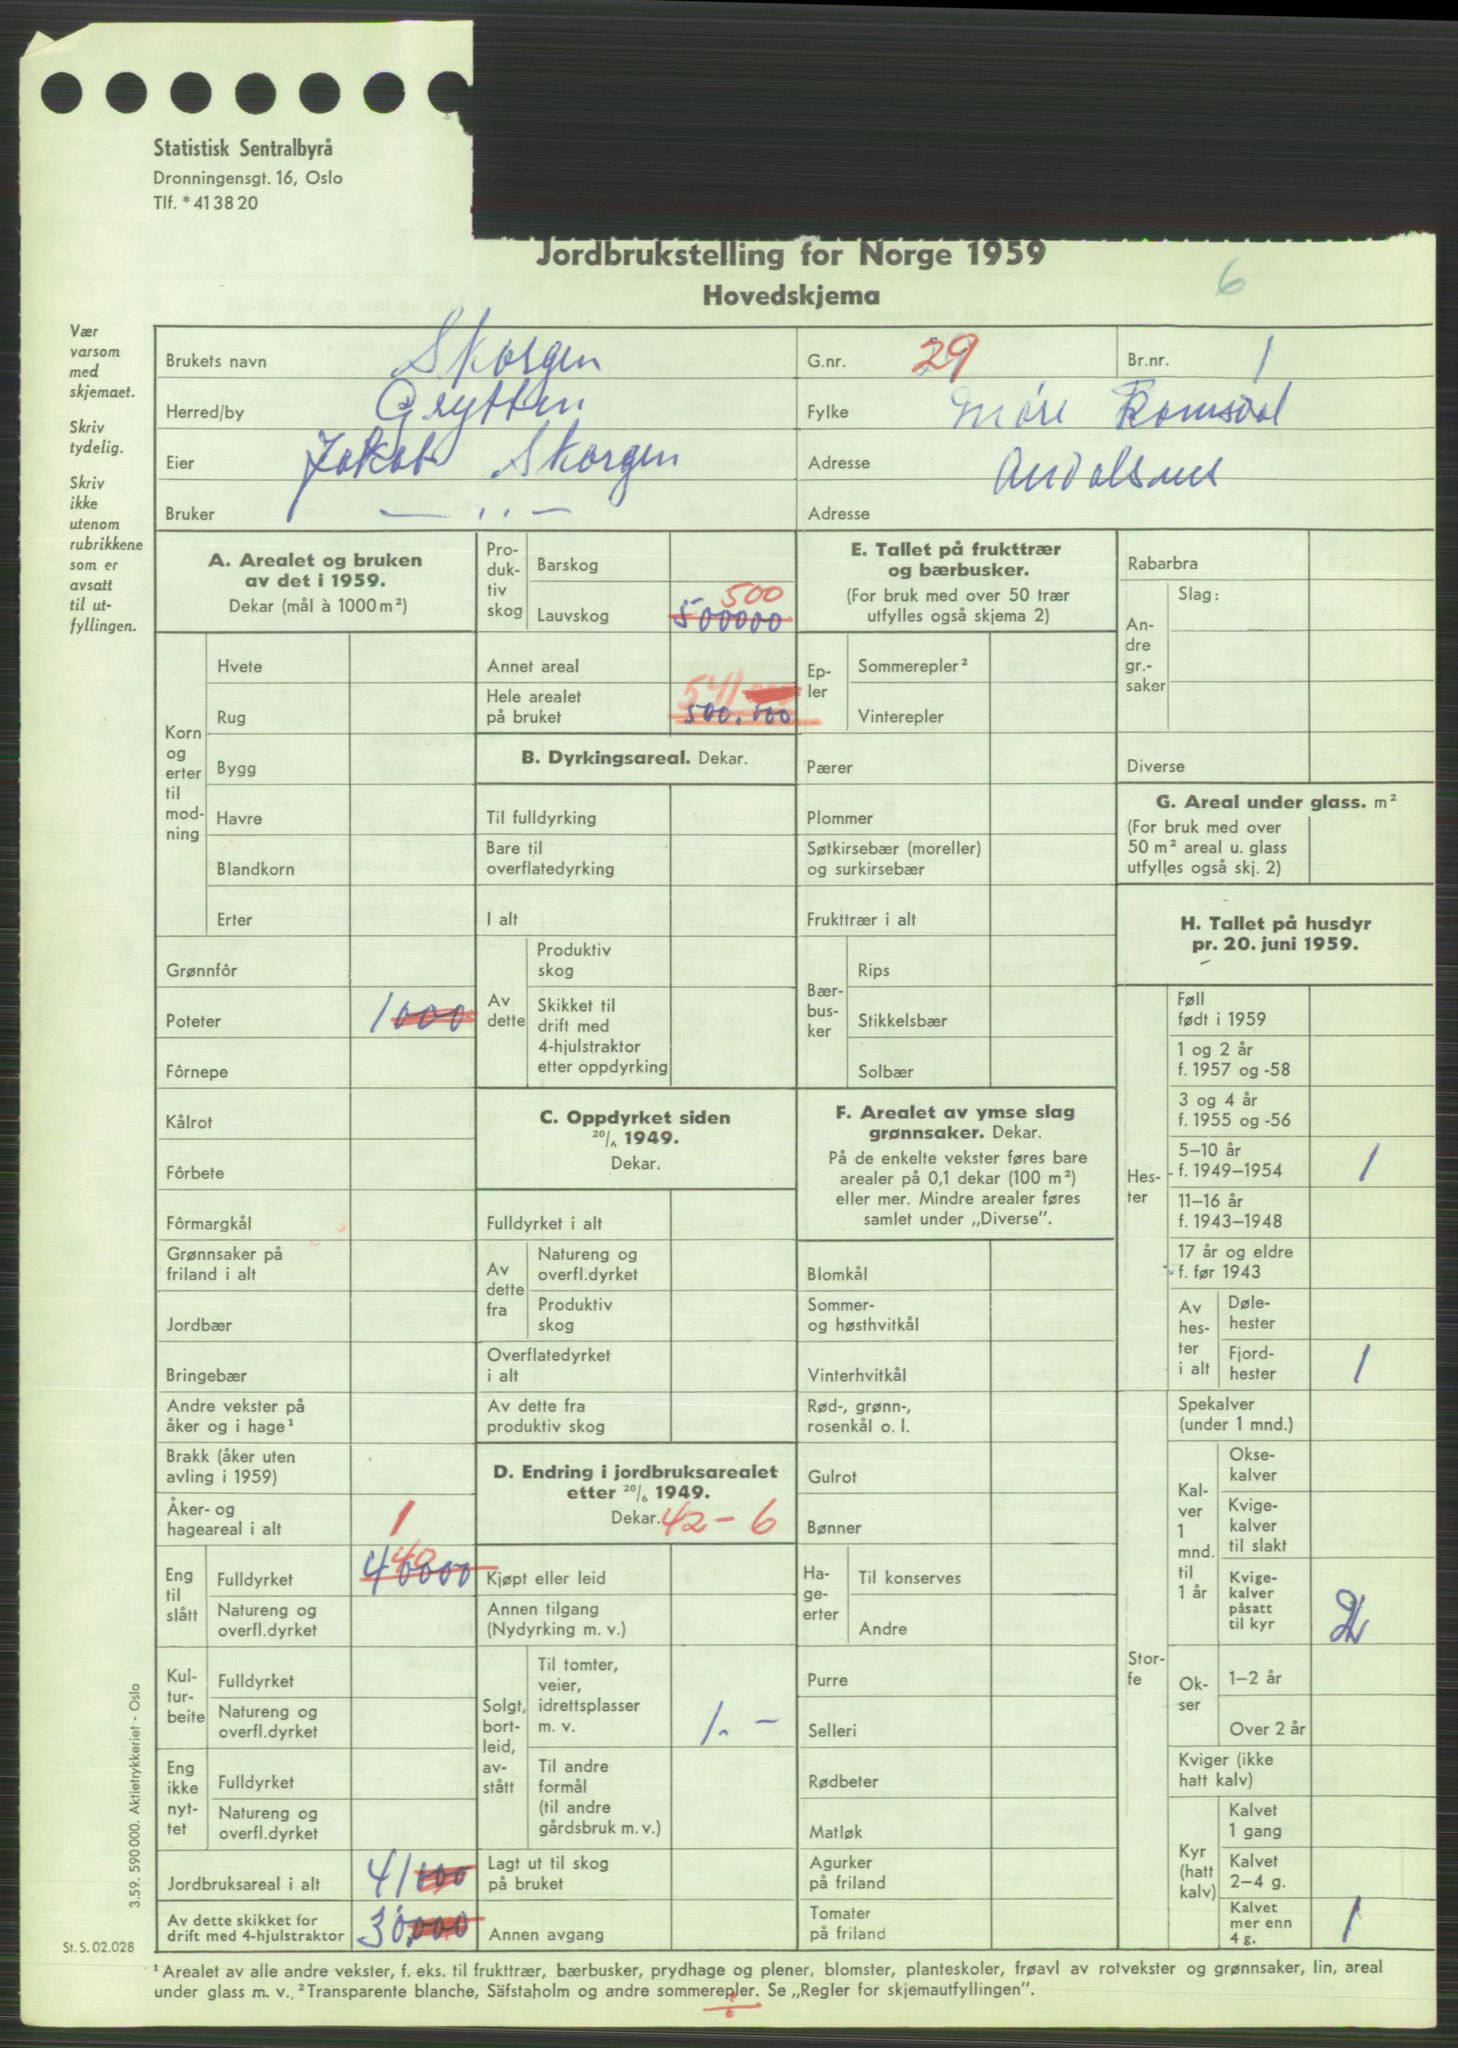 Statistisk Sentralbyrå
Dronningensgt. 16, Oslo
Tlf. * 41 38 20
Jordbrukstelling for Norge 1959
Hovedskjema
6
Vær varsom med skjemaet.
Skriv tydelig.
Skriv ikke utenom rubrikkene som er avsatt til ut-
fyllingen.
Brukets navn Skorgen G.nr. 29 Br.nr. 1
Herred/by Grytten Fylke Møre Romsdal
Eier Jakob Skorgen Adresse Andalsnes
Bruker — .. — Adresse
A. Arealet og bruken
av det i 1959.
Dekar (mål à 1000 m²)
Korn og erter til mod-
ning
Hvete
Rug
Bygg
Havre
Blandkorn
Erter
Grønnfôr
Poteter 1000
Fôrnepe
Kålrot
Fôrbete
Fôrmargkål
Grønnsaker på
friland i alt
Jordbær
Bringebær
Andre vekster på
åker og i hage¹
Brakk (åker uten
avling i 1959)
Åker- og
hageareal i alt 1
Eng til slått
Fulldyrket 40 40000
Natureng og
overfl.dyrket
Kul-
tur-
beite
Fulldyrket
Natureng og
overfl.dyrket
Eng ikke nyt-
tet
Fulldyrket
Natureng og
overfl.dyrket
Jordbruksareal i alt 41000
Av dette skikket for
drift med 4-hjulstraktor 30,000
Pro-
duk-
tiv
skog
Barskog
Lauvskog 500 500000
Annet areal
Hele arealet
på bruket 541 500.000
B. Dyrkingsareal. Dekar.
Til fulldyrking
Bare til
overflatedyrking
I alt
Av dette
Produktiv
skog
Skikket til
drift med
4-hjulstraktor
etter oppdyrking
C. Oppdyrket siden
20/6 1949.
Dekar.
Fulldyrket i alt
Av dette fra
Natureng og
overfl.dyrket
Produktiv
skog
Overflatedyrket
i alt
Av dette fra
produktiv skog
D. Endring i jordbruksarealet
etter 20/6 1949.
Dekar. 42 - 6
Kjøpt eller leid
Annen tilgang
(Nydyrking m. v.)
Solgt,
bort-
leid,
av-
stått
Til tomter,
veier,
idrettsplasser
m. v. 1. -
Til andre
formål
(til andre
gårdsbruk m. v.)
Lagt ut til skog
på bruket
Annen avgang
E. Tallet på frukttrær
og bærbusker.
(For bruk med over 50 trær
utfylles også skjema 2)
Ep-
ler
Sommerepler²
Vinterepler
Pærer
Plommer
Søtkirsebær (moreller)
og surkirsebær
Frukttrær i alt
Bær-
bus-
ker
Rips
Stikkelsbær
Solbær
F. Arealet av ymse slag
grønnsaker. Dekar.
På de enkelte vekster føres bare
arealer på 0,1 dekar (100 m²)
eller mer. Mindre arealer føres
samlet under „Diverse”.
Blomkål
Sommer-
og høsthvitkål
Vinterhvitkål
Rød-, grønn-,
rosenkål o. l.
Gulrot
Bønner
Ha-
ge-
erter
Til konserves
Andre
Purre
Selleri
Rødbeter
Matløk
Agurker
på friland
Tomater
på friland
Rabarbra
An-
dre
gr.-
saker
Slag:
Diverse
G. Areal under glass. m²
(For bruk med over
50 m² areal u. glass
utfylles også skj. 2)
H. Tallet på husdyr
pr. 20. juni 1959.
Hes-
ter
Føll
født i 1959
1 og 2 år
f. 1957 og -58
3 og 4 år
f. 1955 og -56
5–10 år
f. 1949–1954 1
11–16 år
f. 1943–1948
17 år og eldre
f. før 1943
Av
hes-
ter
i alt
Døle-
hester
Fjord-
hester 1
Stor-
fe
Spekalver
(under 1 mnd.)
Kal-
ver
1
mnd.
til
1 år
Okse-
kalver
Kvige-
kalver
til slakt
Kvige-
kalver
påsatt
til kyr
Ok-
ser
1–2 år
Over 2 år
Kviger (ikke
hatt kalv)
Kyr
(hatt
kalv)
Kalvet
1 gang
Kalvet
2–4 g.
Kalvet
mer enn
4 g. 1
3.59. 590 000. Aktietrykkeriet - Oslo
St. S. 02.028
¹ Arealet av alle andre vekster, f. eks. til frukttrær, bærbusker, prydhage og plener, blomster, planteskoler, frøavl av rotvekster og grønnsaker, lin, areal
under glass m. v. ² Transparente blanche, Säfstaholm og andre sommerepler. Se „Regler for skjemautfyllingen”.